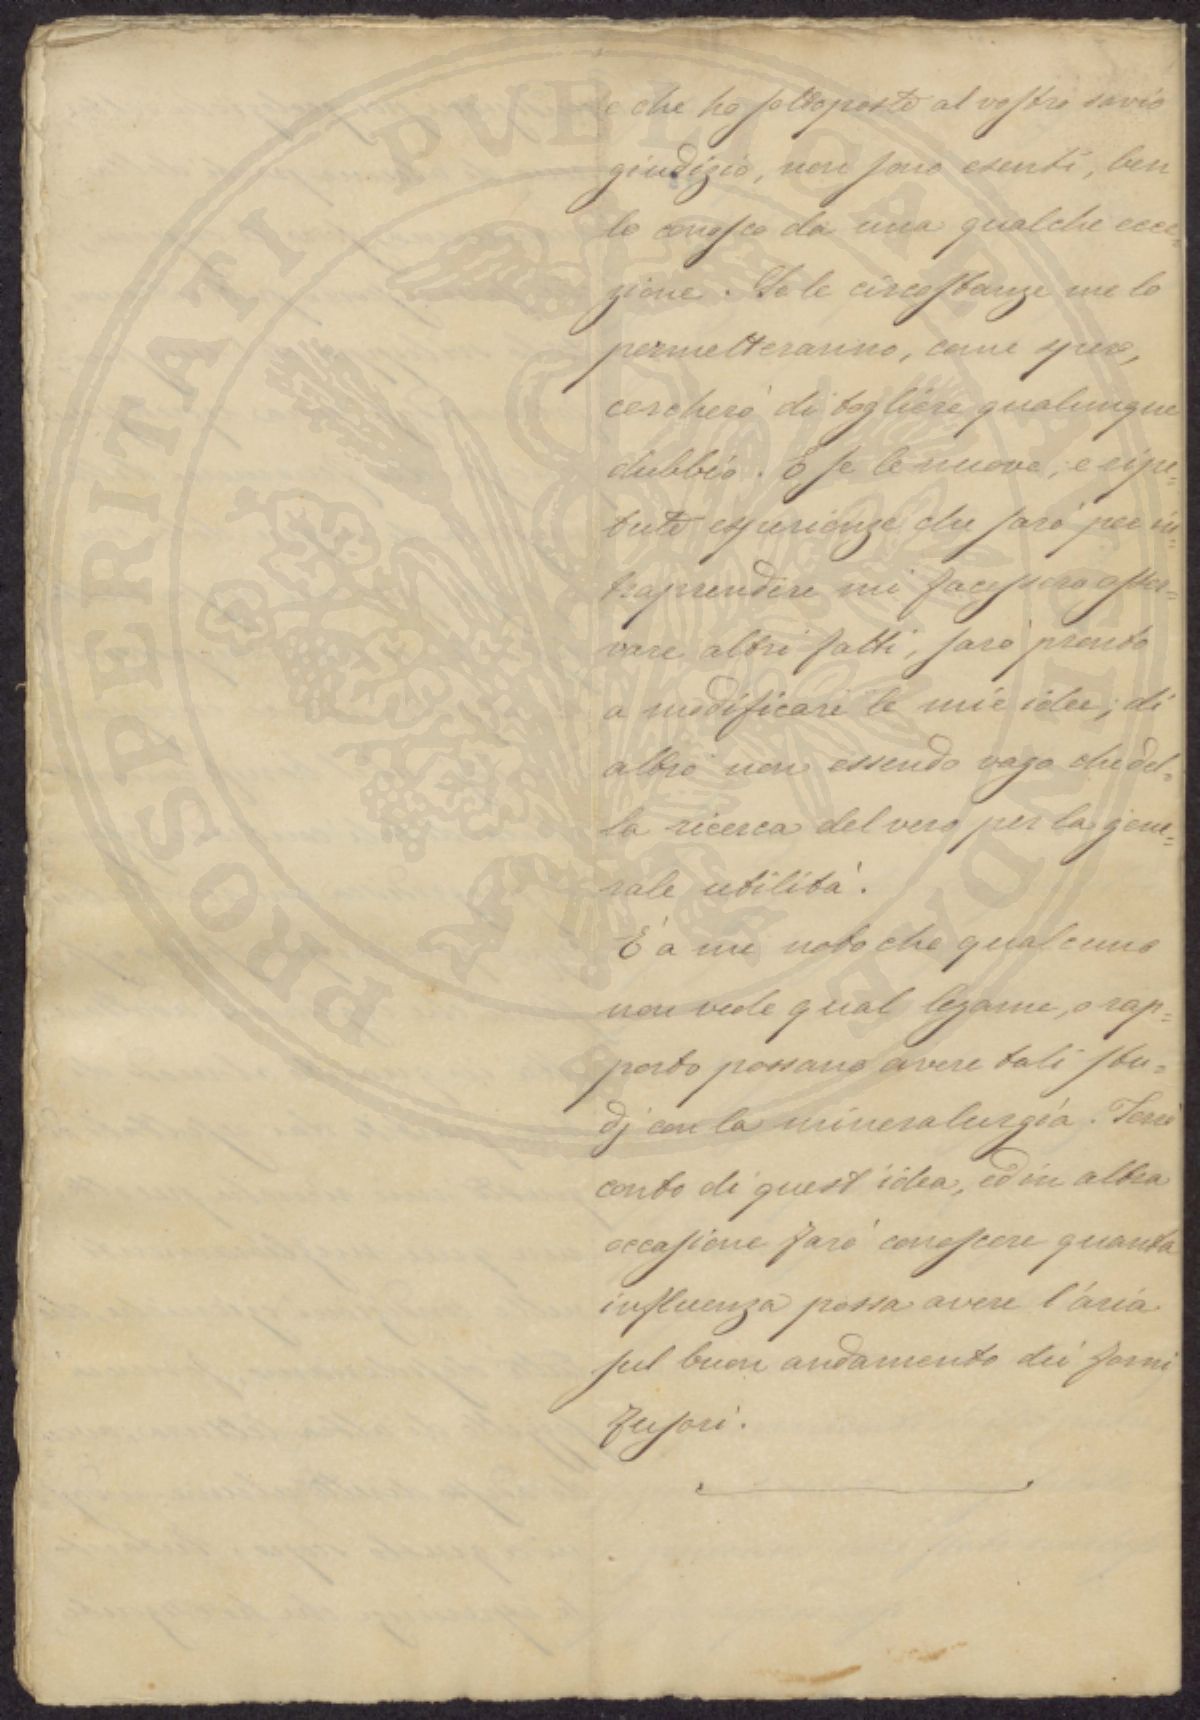 e che ho sottoposto al vostro savio
giudizio, non sono esenti, ben
lo conosco da una qualche ecce=
zione. Se le circostanze me lo
permetteranno, come spero,
cercherò di togliere qualunque
dubbio. E se le nuove, e ripe=
tute esperienze che sarò per in=
traprendere mi facessero osser=
vare altri fatti, sarò pronto
a modificare le mie idee, di
altro non essendo vago che del=
la ricerca del vero per la gene=
rale utilità.
E' a me noto che qualcuno
non vede qual legame, o rap=
porto possano avere tali stu=
dj con la mineralurgía. Terrò
conto di quest'idea, ed in altra
occasione farò conoscere quanta
influenza possa avere l'aria
sul buon andamento dei forni
fusori.
PROSPERITATI PVBLICAE AVGENDAE